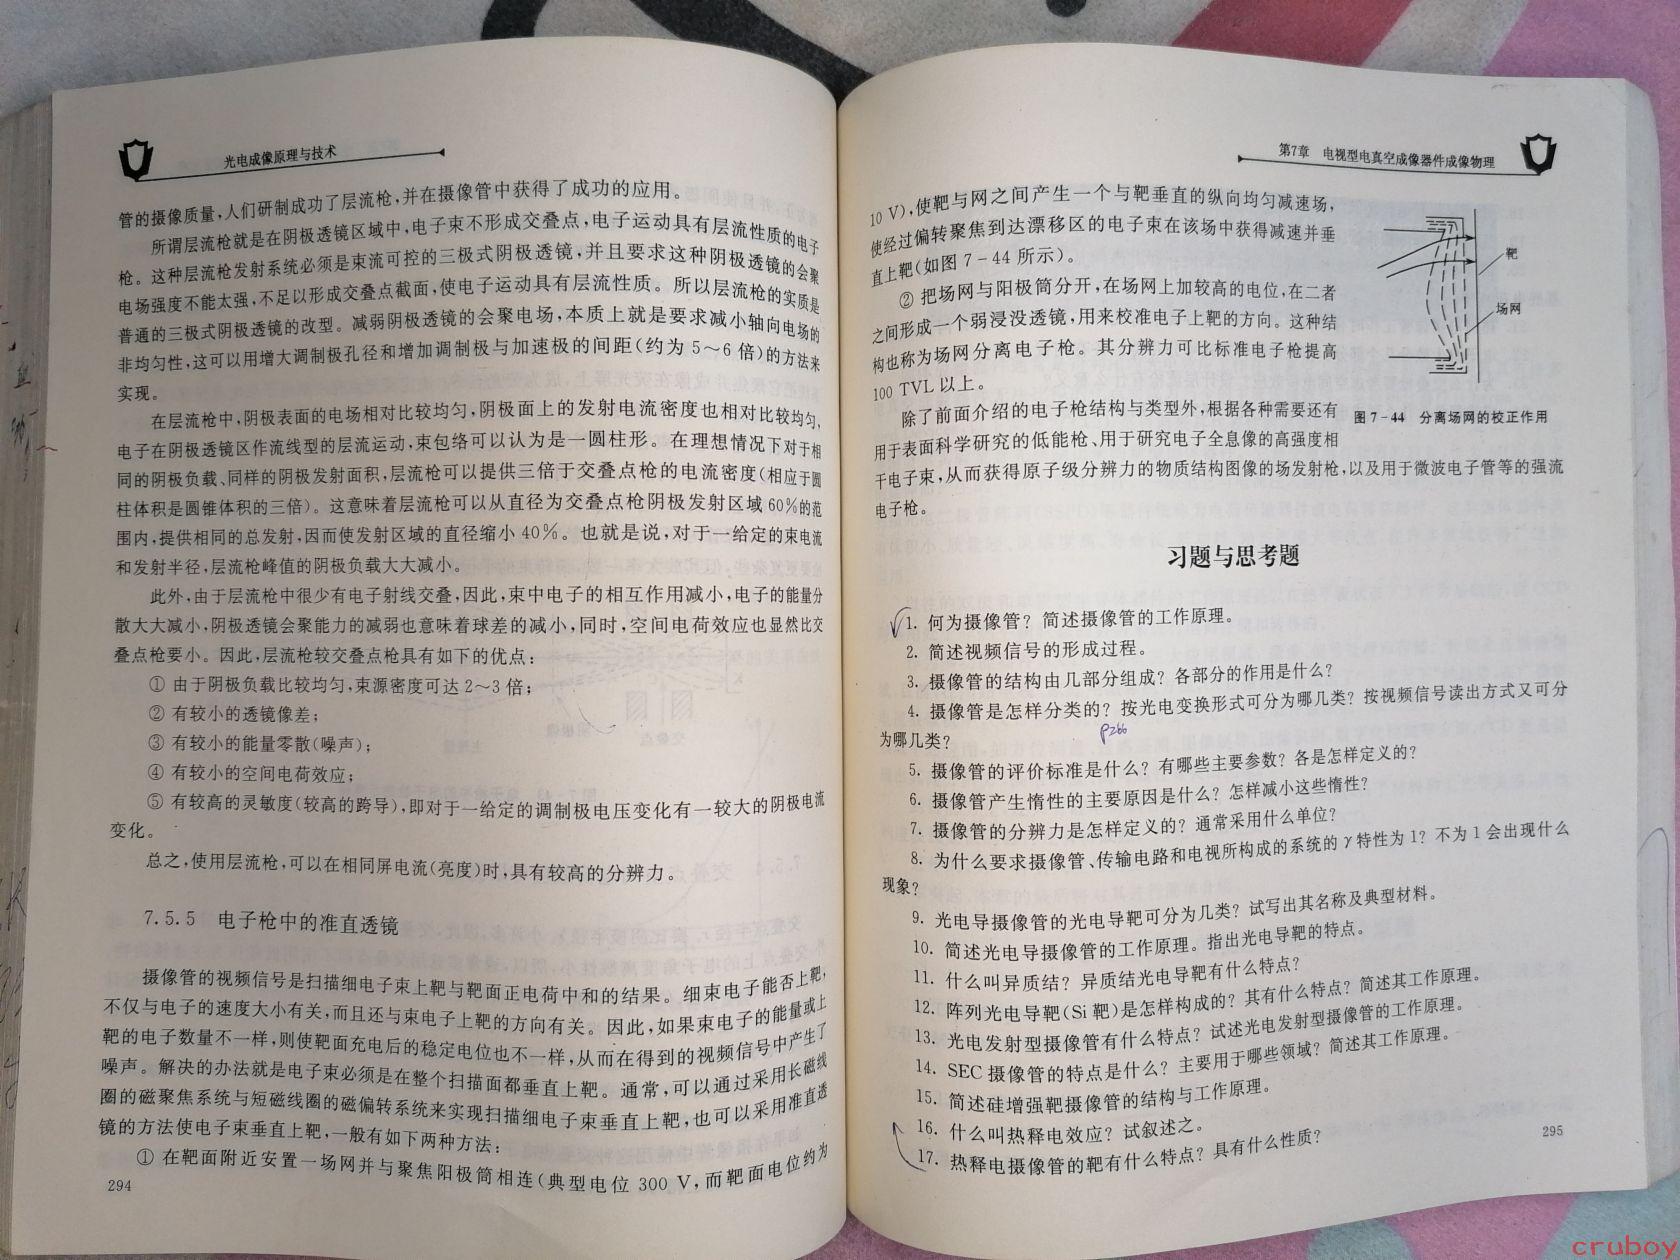 光电成像原理与技术
管的摄像质量,人们研制成功了层流枪,并在摄像管中获得了成功的应用。
所谓层流枪就是在阴极透镜区域中,电子束不形成交叠点,电子运动具有层流性质的电子
枪。这种层流枪发射系统必须是束流可控的三极式阴极透镜,并且要求这种阴极透镜的会聚
电场强度不能太强,不足以形成交叠点截面,使电子运动具有层流性质。所以层流枪的实质是
普通的三极式阴极透镜的改型。减弱阴极透镜的会聚电场,本质上就是要求减小轴向电场的
非均匀性,这可以用增大调制极孔径和增加调制极与加速极的间距(约为5～6倍)的方法来
实现。
在层流枪中,阴极表面的电场相对比较均匀,阴极面上的发射电流密度也相对比较均匀,
电子在阴极透镜区作流线型的层流运动,束包络可以认为是一圆柱形。在理想情况下对于相
同的阴极负载、同样的阴极发射面积,层流枪可以提供三倍于交叠点枪的电流密度(相应于圆
柱体积是圆锥体积的三倍)。这意味着层流枪可以从直径为交叠点枪阴极发射区域60%的范
围内,提供相同的总发射,因而使发射区域的直径缩小40%。也就是说,对于一给定的束电流
和发射半径,层流枪峰值的阴极负载大大减小。
此外,由于层流枪中很少有电子射线交叠,因此,束中电子的相互作用减小,电子的能量分
散大大减小,阴极透镜会聚能力的减弱也意味着球差的减小,同时,空间电荷效应也显然比交
叠点枪要小。因此,层流枪较交叠点枪具有如下的优点:
① 由于阴极负载比较均匀,束源密度可达2～3倍;
② 有较小的透镜像差;
③ 有较小的能量零散(噪声);
④ 有较小的空间电荷效应;
⑤ 有较高的灵敏度(较高的跨导),即对于一给定的调制极电压变化有一较大的阴极电流
变化。
总之,使用层流枪,可以在相同屏电流(亮度)时,具有较高的分辨力。
7.5.5 电子枪中的准直透镜
摄像管的视频信号是扫描细电子束上靶与靶面正电荷中和的结果。细束电子能否上靶,
不仅与电子的速度大小有关,而且还与束电子上靶的方向有关。因此,如果束电子的能量或上
靶的电子数量不一样,则使靶面充电后的稳定电位也不一样,从而在得到的视频信号中产生了
噪声。解决的办法就是电子束必须是在整个扫描面都垂直上靶。通常,可以通过采用长磁线
圈的磁聚焦系统与短磁线圈的磁偏转系统来实现扫描细电子束垂直上靶,也可以采用准直透
镜的方法使电子束垂直上靶,一般有如下两种方法:
① 在靶面附近安置一场网并与聚焦阳极筒相连(典型电位300 V,而靶面电位约为
294
第7章 电视型电真空成像器件成像物理
10 V),使靶与网之间产生一个与靶垂直的纵向均匀减速场,
使经过偏转聚焦到达漂移区的电子束在该场中获得减速并垂
直上靶(如图7-44所示)。
② 把场网与阳极筒分开,在场网上加较高的电位,在二者
之间形成一个弱浸没透镜,用来校准电子上靶的方向。这种结
构也称为场网分离电子枪。其分辨力可比标准电子枪提高
100 TVL以上。
靶
场网
图7-44 分离场网的校正作用
除了前面介绍的电子枪结构与类型外,根据各种需要还有
用于表面科学研究的低能枪、用于研究电子全息像的高强度相
干电子束,从而获得原子级分辨力的物质结构图像的场发射枪,以及用于微波电子管等的强流
电子枪。
习题与思考题
1. 何为摄像管? 简述摄像管的工作原理。
2. 简述视频信号的形成过程。
3. 摄像管的结构由几部分组成? 各部分的作用是什么?
4. 摄像管是怎样分类的? 按光电变换形式可分为哪几类? 按视频信号读出方式又可分
为哪几类?
P266
5. 摄像管的评价标准是什么? 有哪些主要参数? 各是怎样定义的?
6. 摄像管产生惰性的主要原因是什么? 怎样减小这些惰性?
7. 摄像管的分辨力是怎样定义的? 通常采用什么单位?
8. 为什么要求摄像管、传输电路和电视所构成的系统的γ特性为1? 不为1会出现什么
现象?
9. 光电导摄像管的光电导靶可分为几类? 试写出其名称及典型材料。
10. 简述光电导摄像管的工作原理。指出光电导靶的特点。
11. 什么叫异质结? 异质结光电导靶有什么特点?
12. 阵列光电导靶(Si靶)是怎样构成的? 其有什么特点? 简述其工作原理。
13. 光电发射型摄像管有什么特点? 试述光电发射型摄像管的工作原理。
14. SEC摄像管的特点是什么? 主要用于哪些领域? 简述其工作原理。
15. 简述硅增强靶摄像管的结构与工作原理。
16. 什么叫热释电效应? 试叙述之。
17. 热释电摄像管的靶有什么特点? 具有什么性质?
295
cruboy